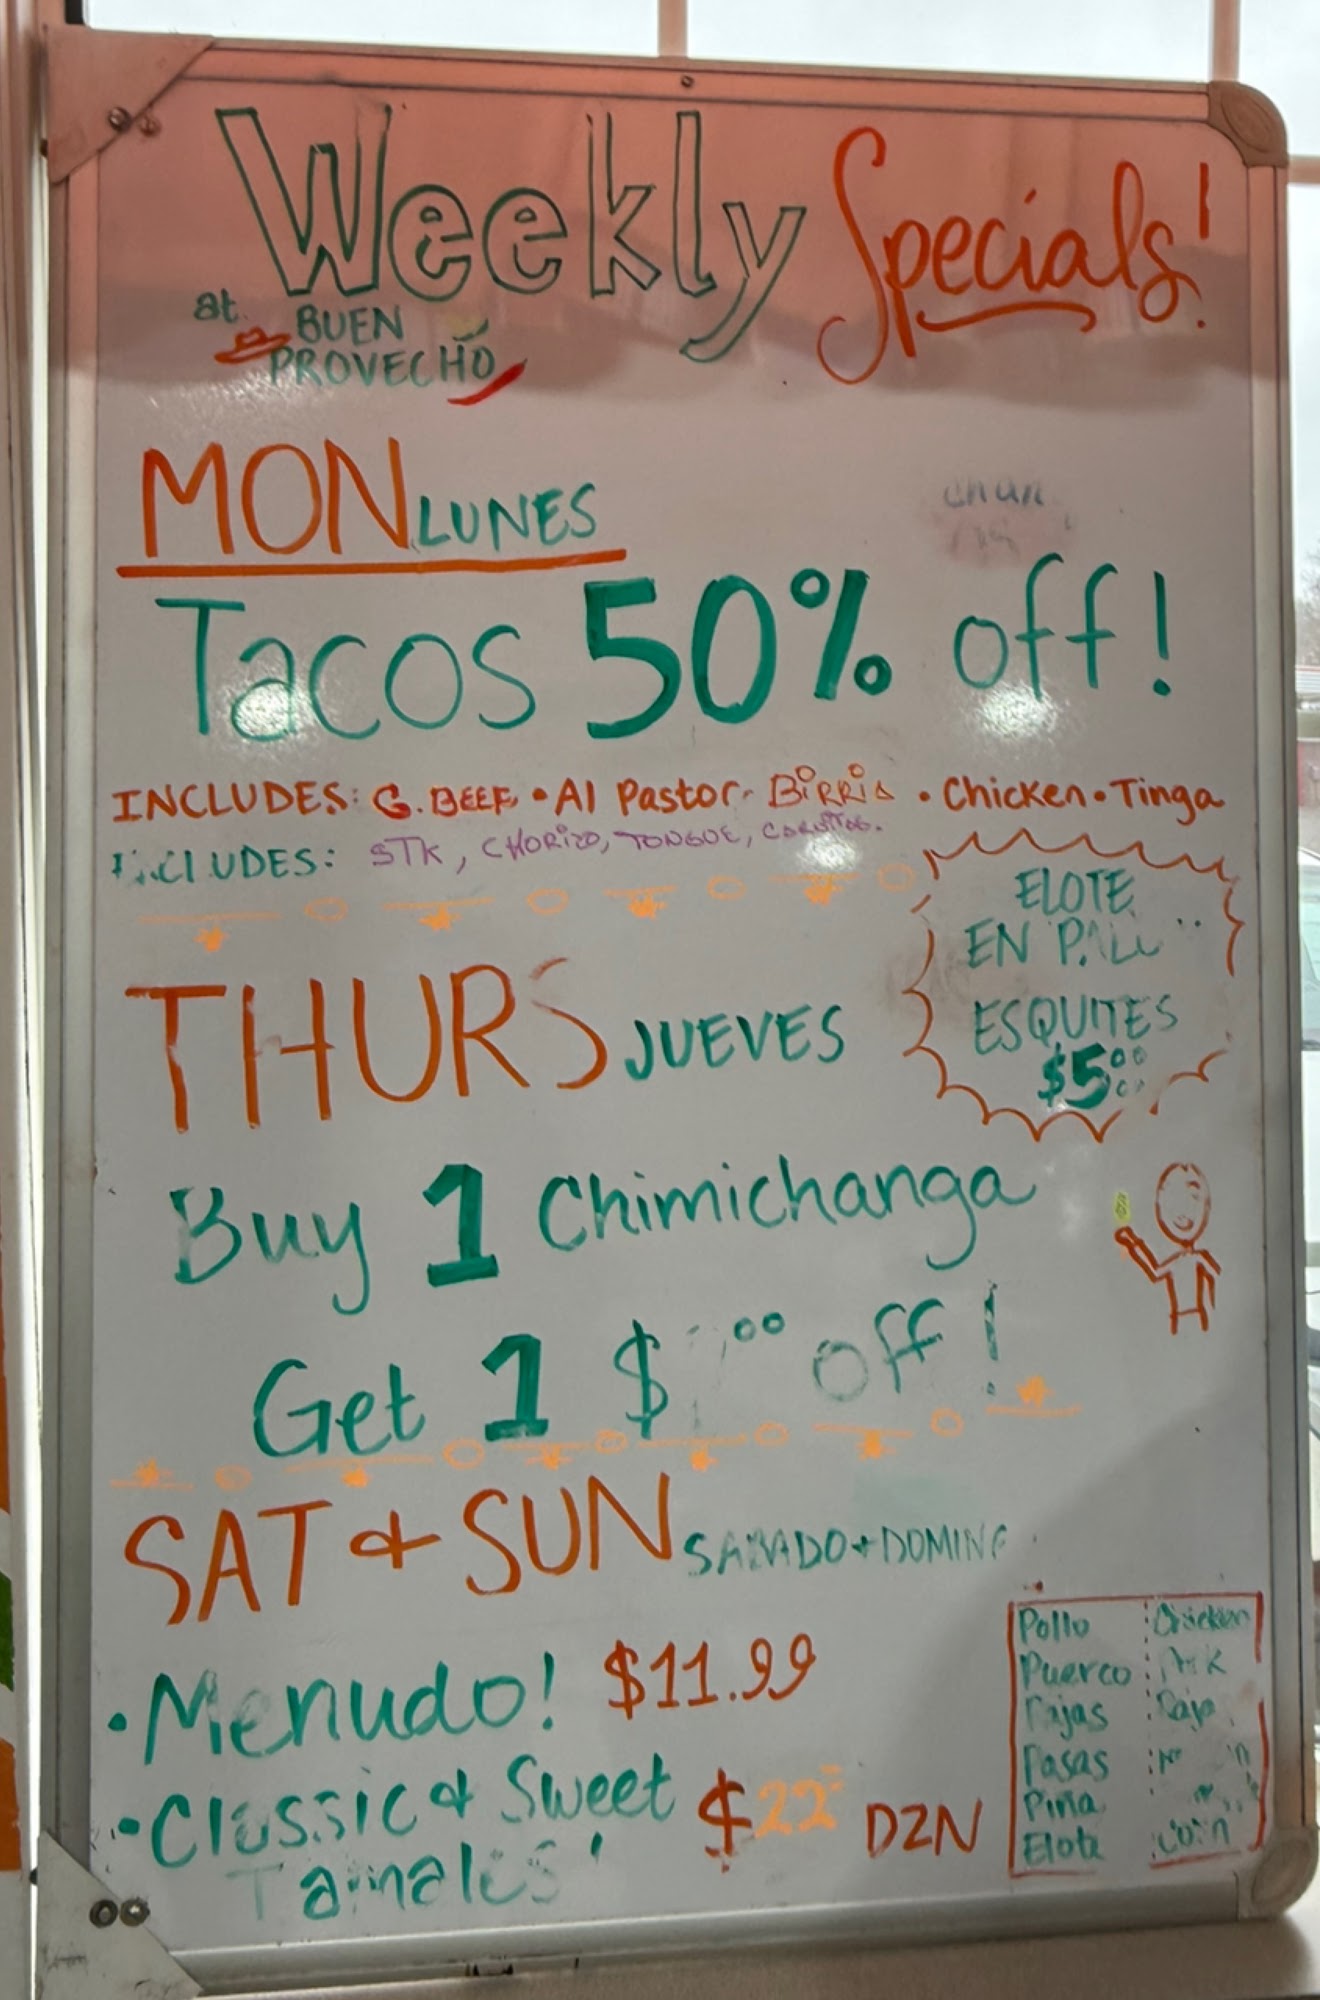 Weekly Specials!
at BUEN
PROVECHO
MON LUNES
Tacos 50% off!
INCLUDES: G. BEEF • Al Pastor • Birria • Chicken • Tinga
STK, CHORIZO, TONGUE, CARNITAS.
ELOTE
EN
ESQUITES
$5.00
THURS JUEVES
Buy 1 Chimichanga
Get 1 $ off!
SAT & SUN SABADO + DOMING
• Menudo! $11.99
• Classic & Sweet $22 DZN
Tamales!
Pollo : Chicken
Puerco :
Rajas : Raja
Pasas :
Piña
Elote : Corn